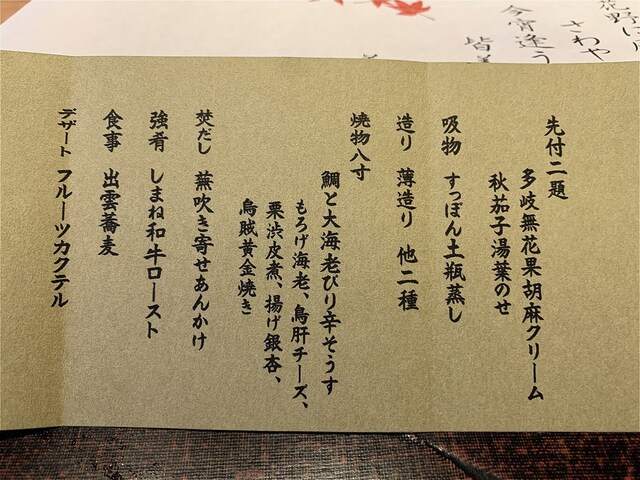 花野に
さわや
今宵逢う
皆
先付二題
多岐無花果胡麻クリーム
秋茄子湯葉のせ
吸物 すっぽん土瓶蒸し
造り 薄造り 他二種
焼物八寸
鯛と大海老ぴり辛そうす
もろげ海老、鳥肝チーズ、
栗渋皮煮、揚げ銀杏、
烏賊黄金焼き
焚だし 蕪吹き寄せあんかけ
強肴 しまね和牛ロースト
食事 出雲蕎麦
デザート フルーツカクテル